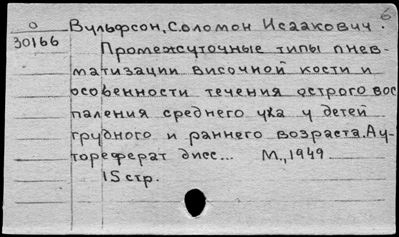 6
о Вульфсон, Соломон Исаакович.
30166
Промежуточные типы пнев-
матизации височной кости и
особенности течения острого вос
паления среднего уха у детей
грудного и раннего возраста. Ау-
тореферат дисс... М., 1949
15 стр.